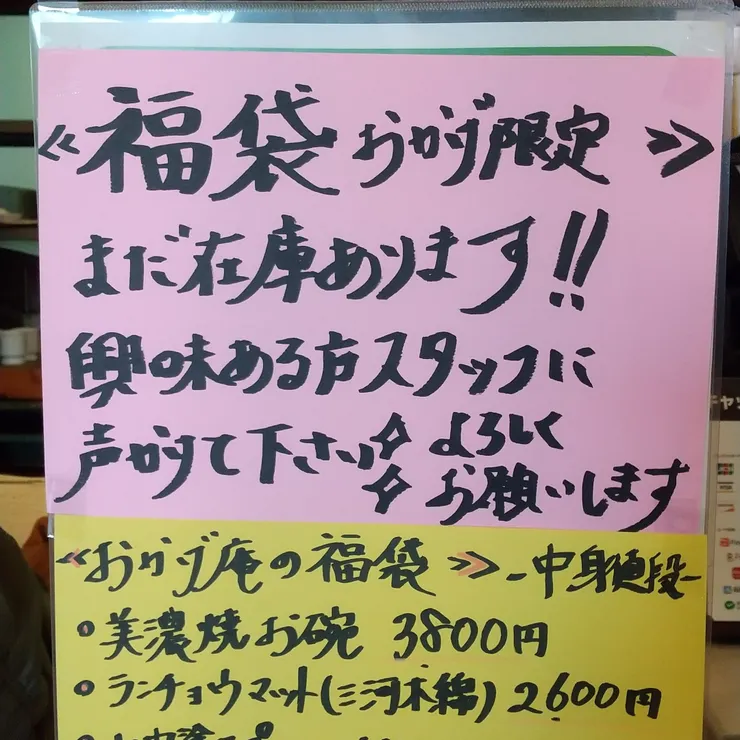 ≪福袋 おかげ限定≫
まだ在庫あります!!
興味ある方スタッフに
声かけて下さい よろしく
お願いします
≪おかげ庵の福袋≫ -中身値段-
・美濃焼お碗 3800円
・ランチョウマット(三河木綿) 2600円